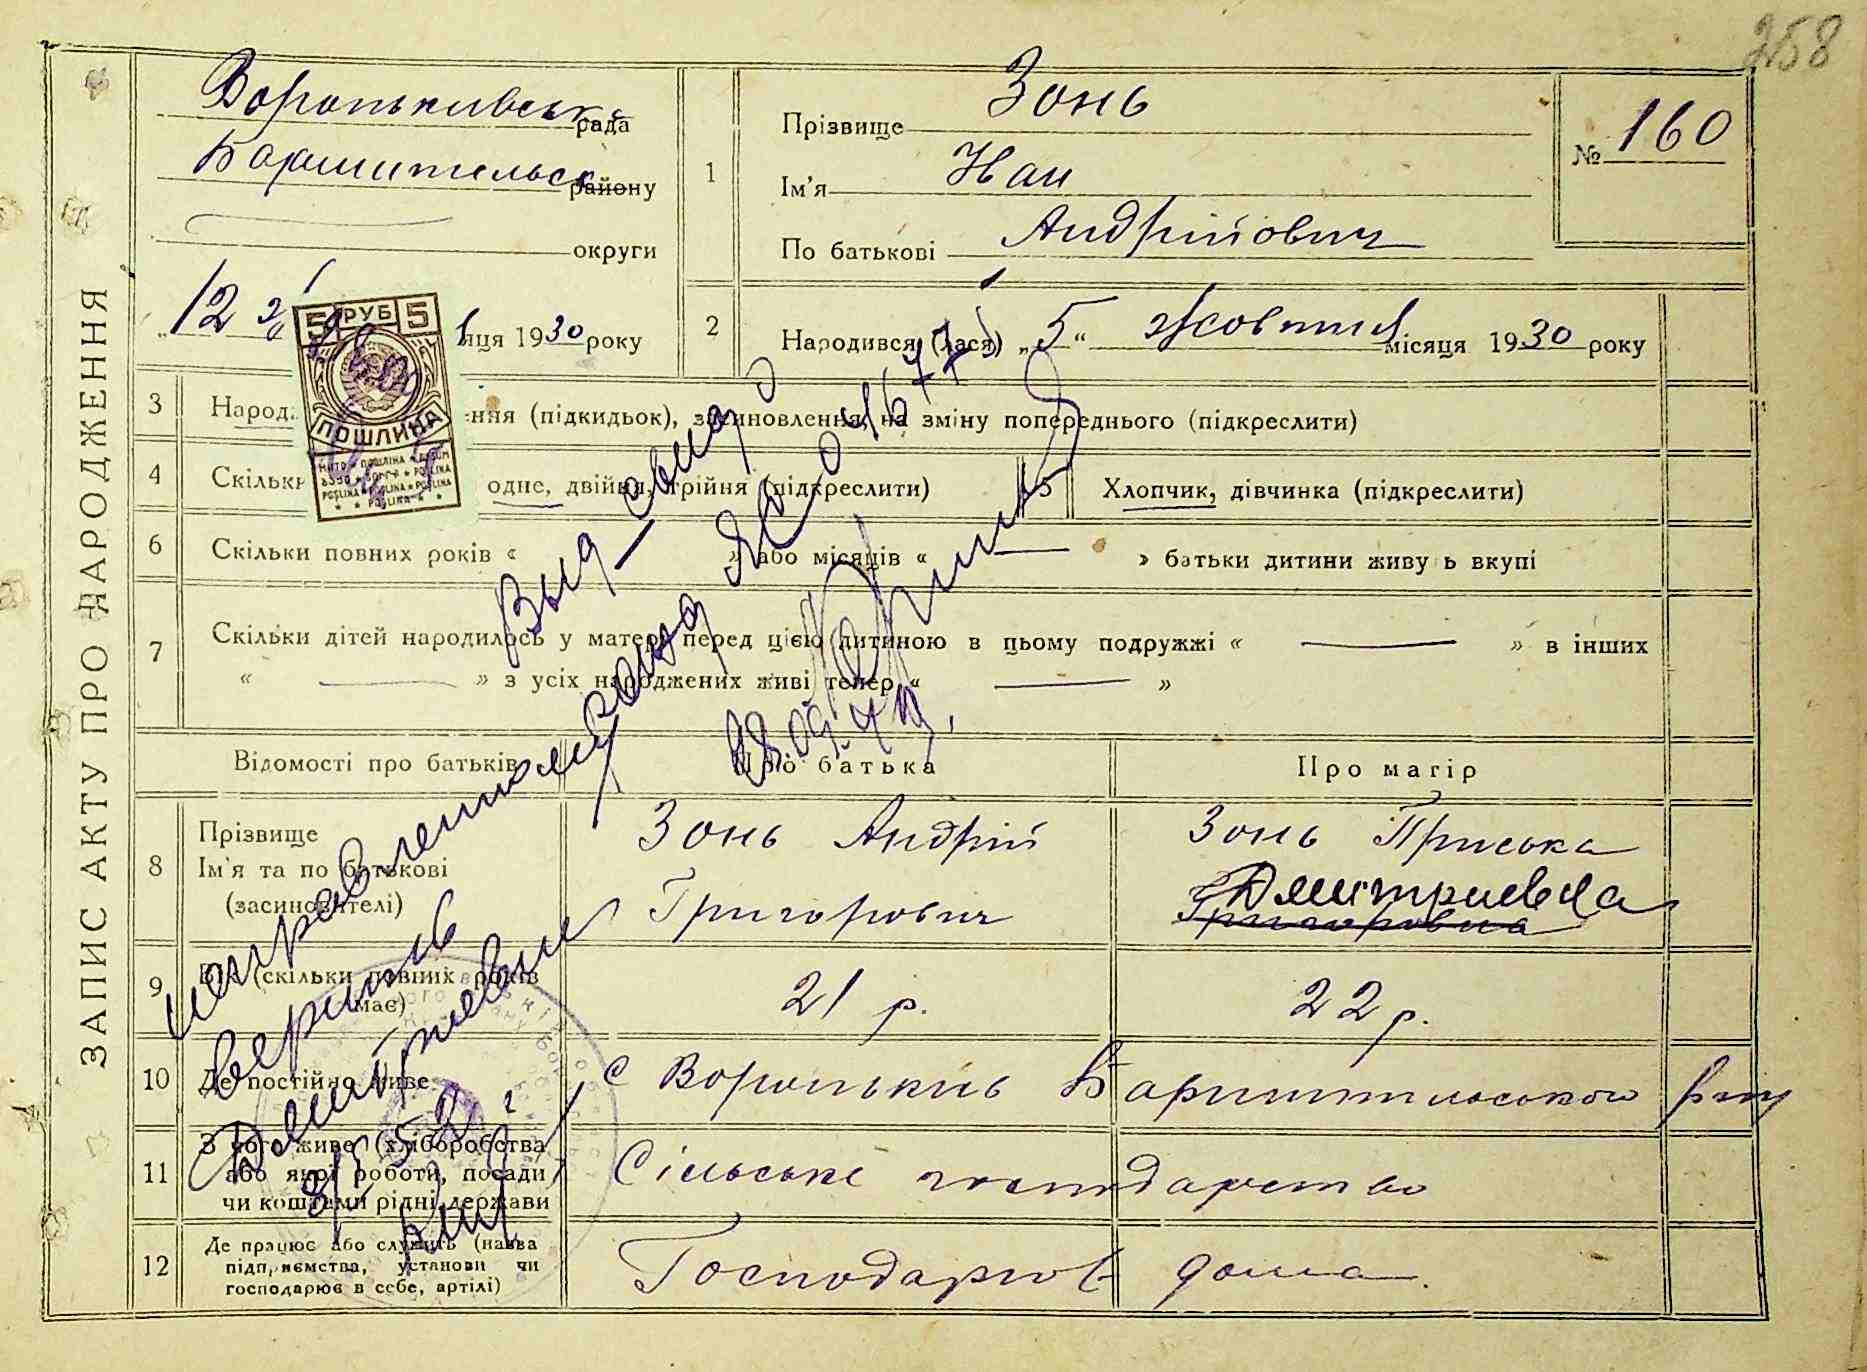 258
ЗАПИС АКТУ ПРО НАРОДЖЕННЯ
Вороньківська рада
району
округи
12 1930 року
1
Прізвище Зонь
Ім'я Иан
По батькові Андрійович
№ 160
2
Народився (лася) „5“ Жовтня місяця 1930 року
5 РУБ 5
ПОШЛИНА
3 Народ ння (підкидьок), засиновлення, на зміну попереднього (підкреслити)
4 Скільки одне, двійня, трійня (підкреслити)
5 Хлопчик, дівчинка (підкреслити)
6 Скільки повних років « » або місяців « — » батьки дитини живуть вкупі
7 Скільки дітей народилось у матері перед цією дитиною в цьому подружжі « — » в інших
« — » з усіх народжених живі тепер « — »
Выд
28.09.49
Відомості про батьків
Про батька
Про матір
8
Прізвище
Ім'я та по батькові
(засиновителі)
Зонь Андрій
Григорович
Зонь Приська
Дмитриевна
Григоровна
9 Вік (скільки повних років має)
21 р.
22 р.
10 Де постійно живе
с Вороньків Баришпільського р-ну
11 З чого живе (хліборобства
або якої роботи, посади
чи коштами рідні, держави
Сільське господарство
12 Де працює або служить (назва
підприємства, установи чи
господарює в себе, артілі)
Господарює дома.
исправленному
верить
Дмитриевне